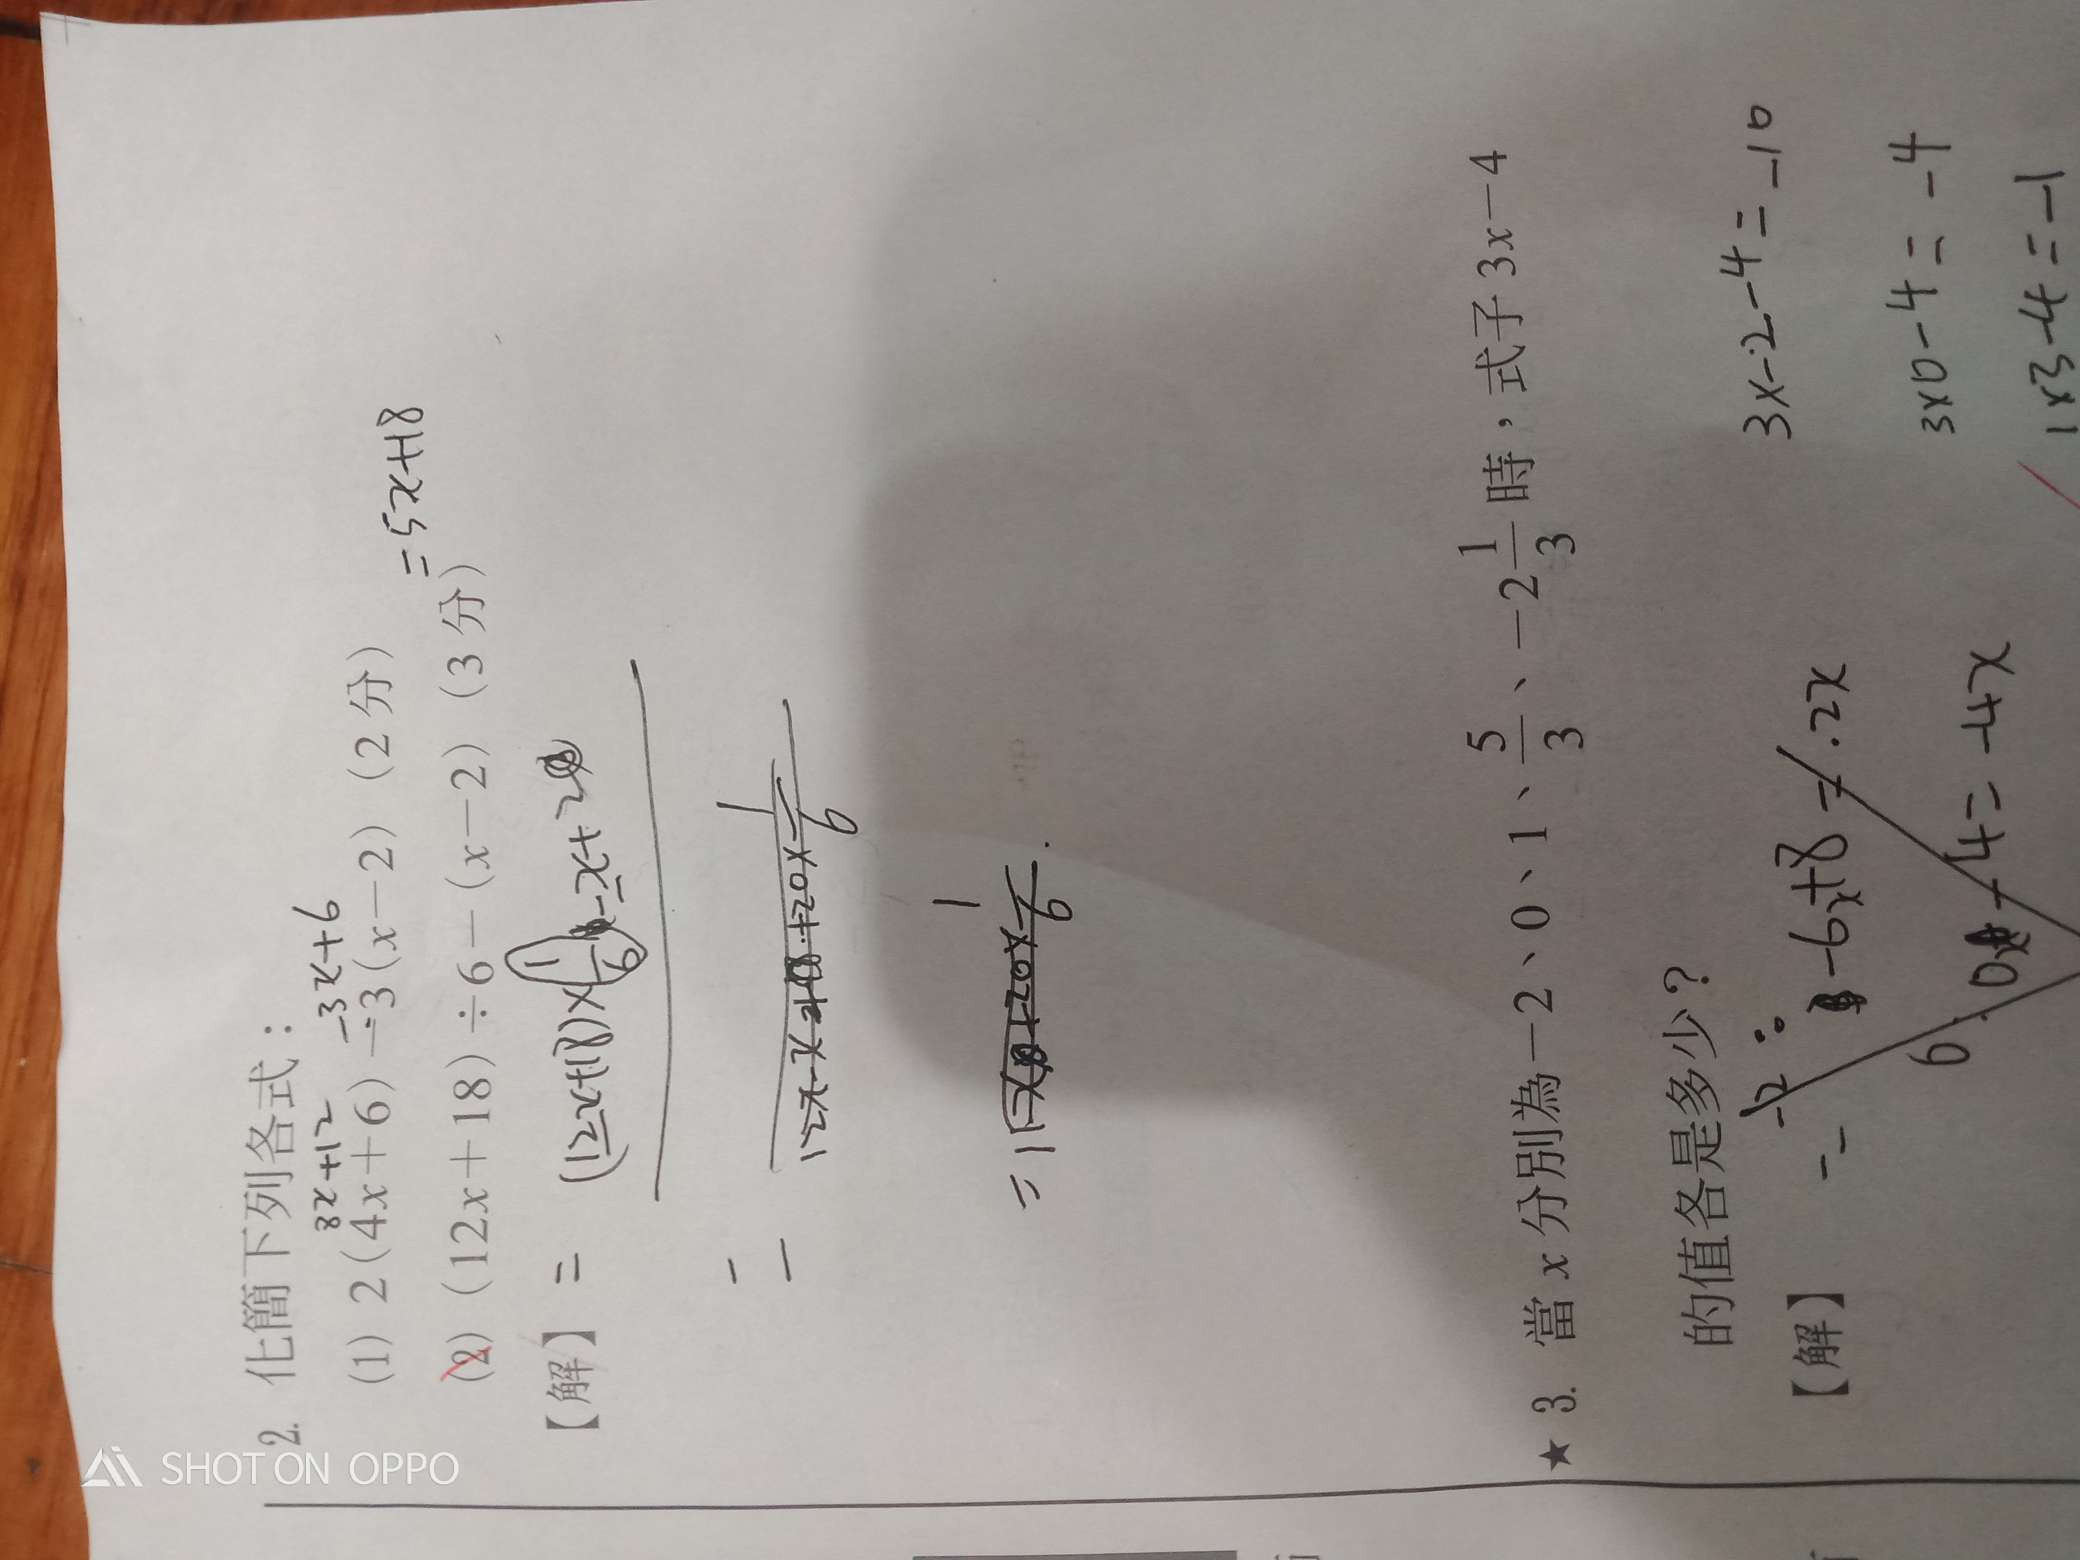 2. 化簡下列各式：
8x+12 -3x+6
(1) 2(4x+6)-3(x-2)(2分)
=5x+18
(2) (12x+18)÷6-(x-2)(3分)
【解】= (12x+18)×1/6 -x+2
=
12x-x+20×1/6
=11x+20×1/6
★ 3. 當x分別為-2、0、1、5/3、-2 1/3時，式子3x-4
的值各是多少？
【解】
-2:
-6x+8=2x
0 -4=-4x
3x-2-4=-10
3×0-4=-4
1×3-4=-1
SHOT ON OPPO